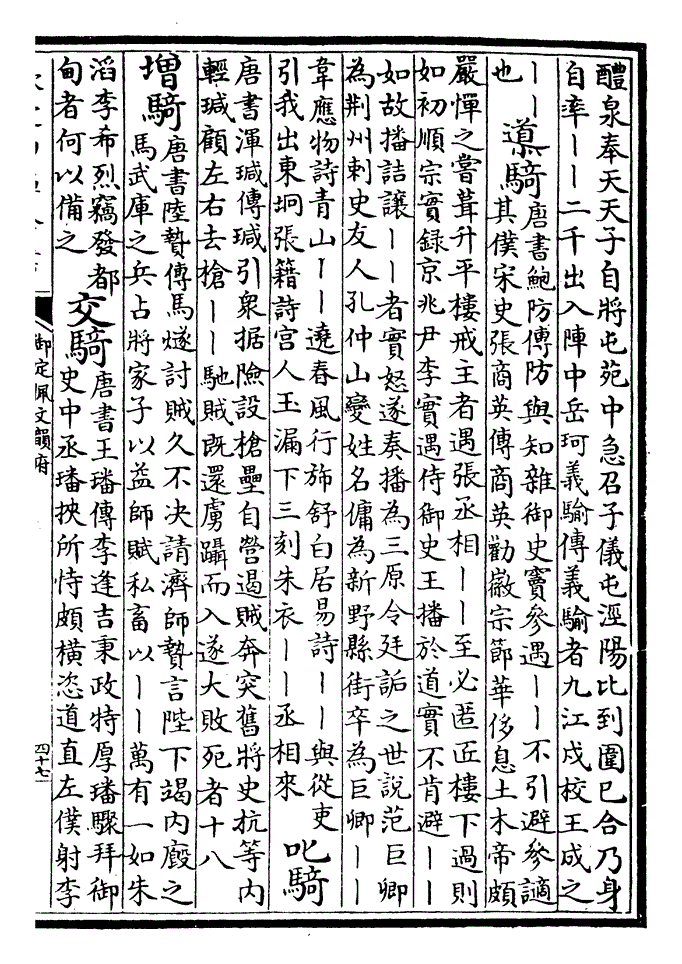 醴泉奉天天子自將屯苑中急召子儀屯涇陽比到圍已合乃身
自率丨丨二千出入陣中岳珂義騟傳義騟者九江戍校王成之
丨丨也
導騎
唐書鮑防傳防與知雜御史竇參遇丨丨不引避參謫
其僕宋史張商英傳商英勸徽宗節華侈息土木帝頗
嚴憚之嘗葺升平樓戒主者遇張丞相丨丨至必匿匠樓下過則
如初順宗實録京兆尹李實遇侍御史王播於道實不肯避丨丨
如故播詰讓丨丨者實怒遂奏播為三原令廷詬之世說范巨卿
為荆州刺史友人孔仲山變姓名傭為新野縣街卒為巨卿丨丨
韋應物詩青山丨丨遶春風行斾舒白居易詩丨丨與從吏
引我出東坰張籍詩宫人玉漏下三刻朱衣丨丨丞相來
叱騎
唐書渾瑊傳瑊引衆据險設槍壘自營遏賊奔突舊將史抗等内
輕瑊顧左右去槍丨丨馳賊既還虜躡而入遂大敗死者十八
增騎
唐書陸贄傳馬燧討賊久不決請濟師贄言陛下竭内廐之
馬武庫之兵占將家子以益師賦私畜以丨丨萬有一如朱
滔李希烈竊發都
甸者何以備之
交騎
唐書王璠傳李逢吉秉政特厚璠驟拜御
史中丞璠挾所恃頗橫恣道直左僕射李
御定佩文韻府
四十七